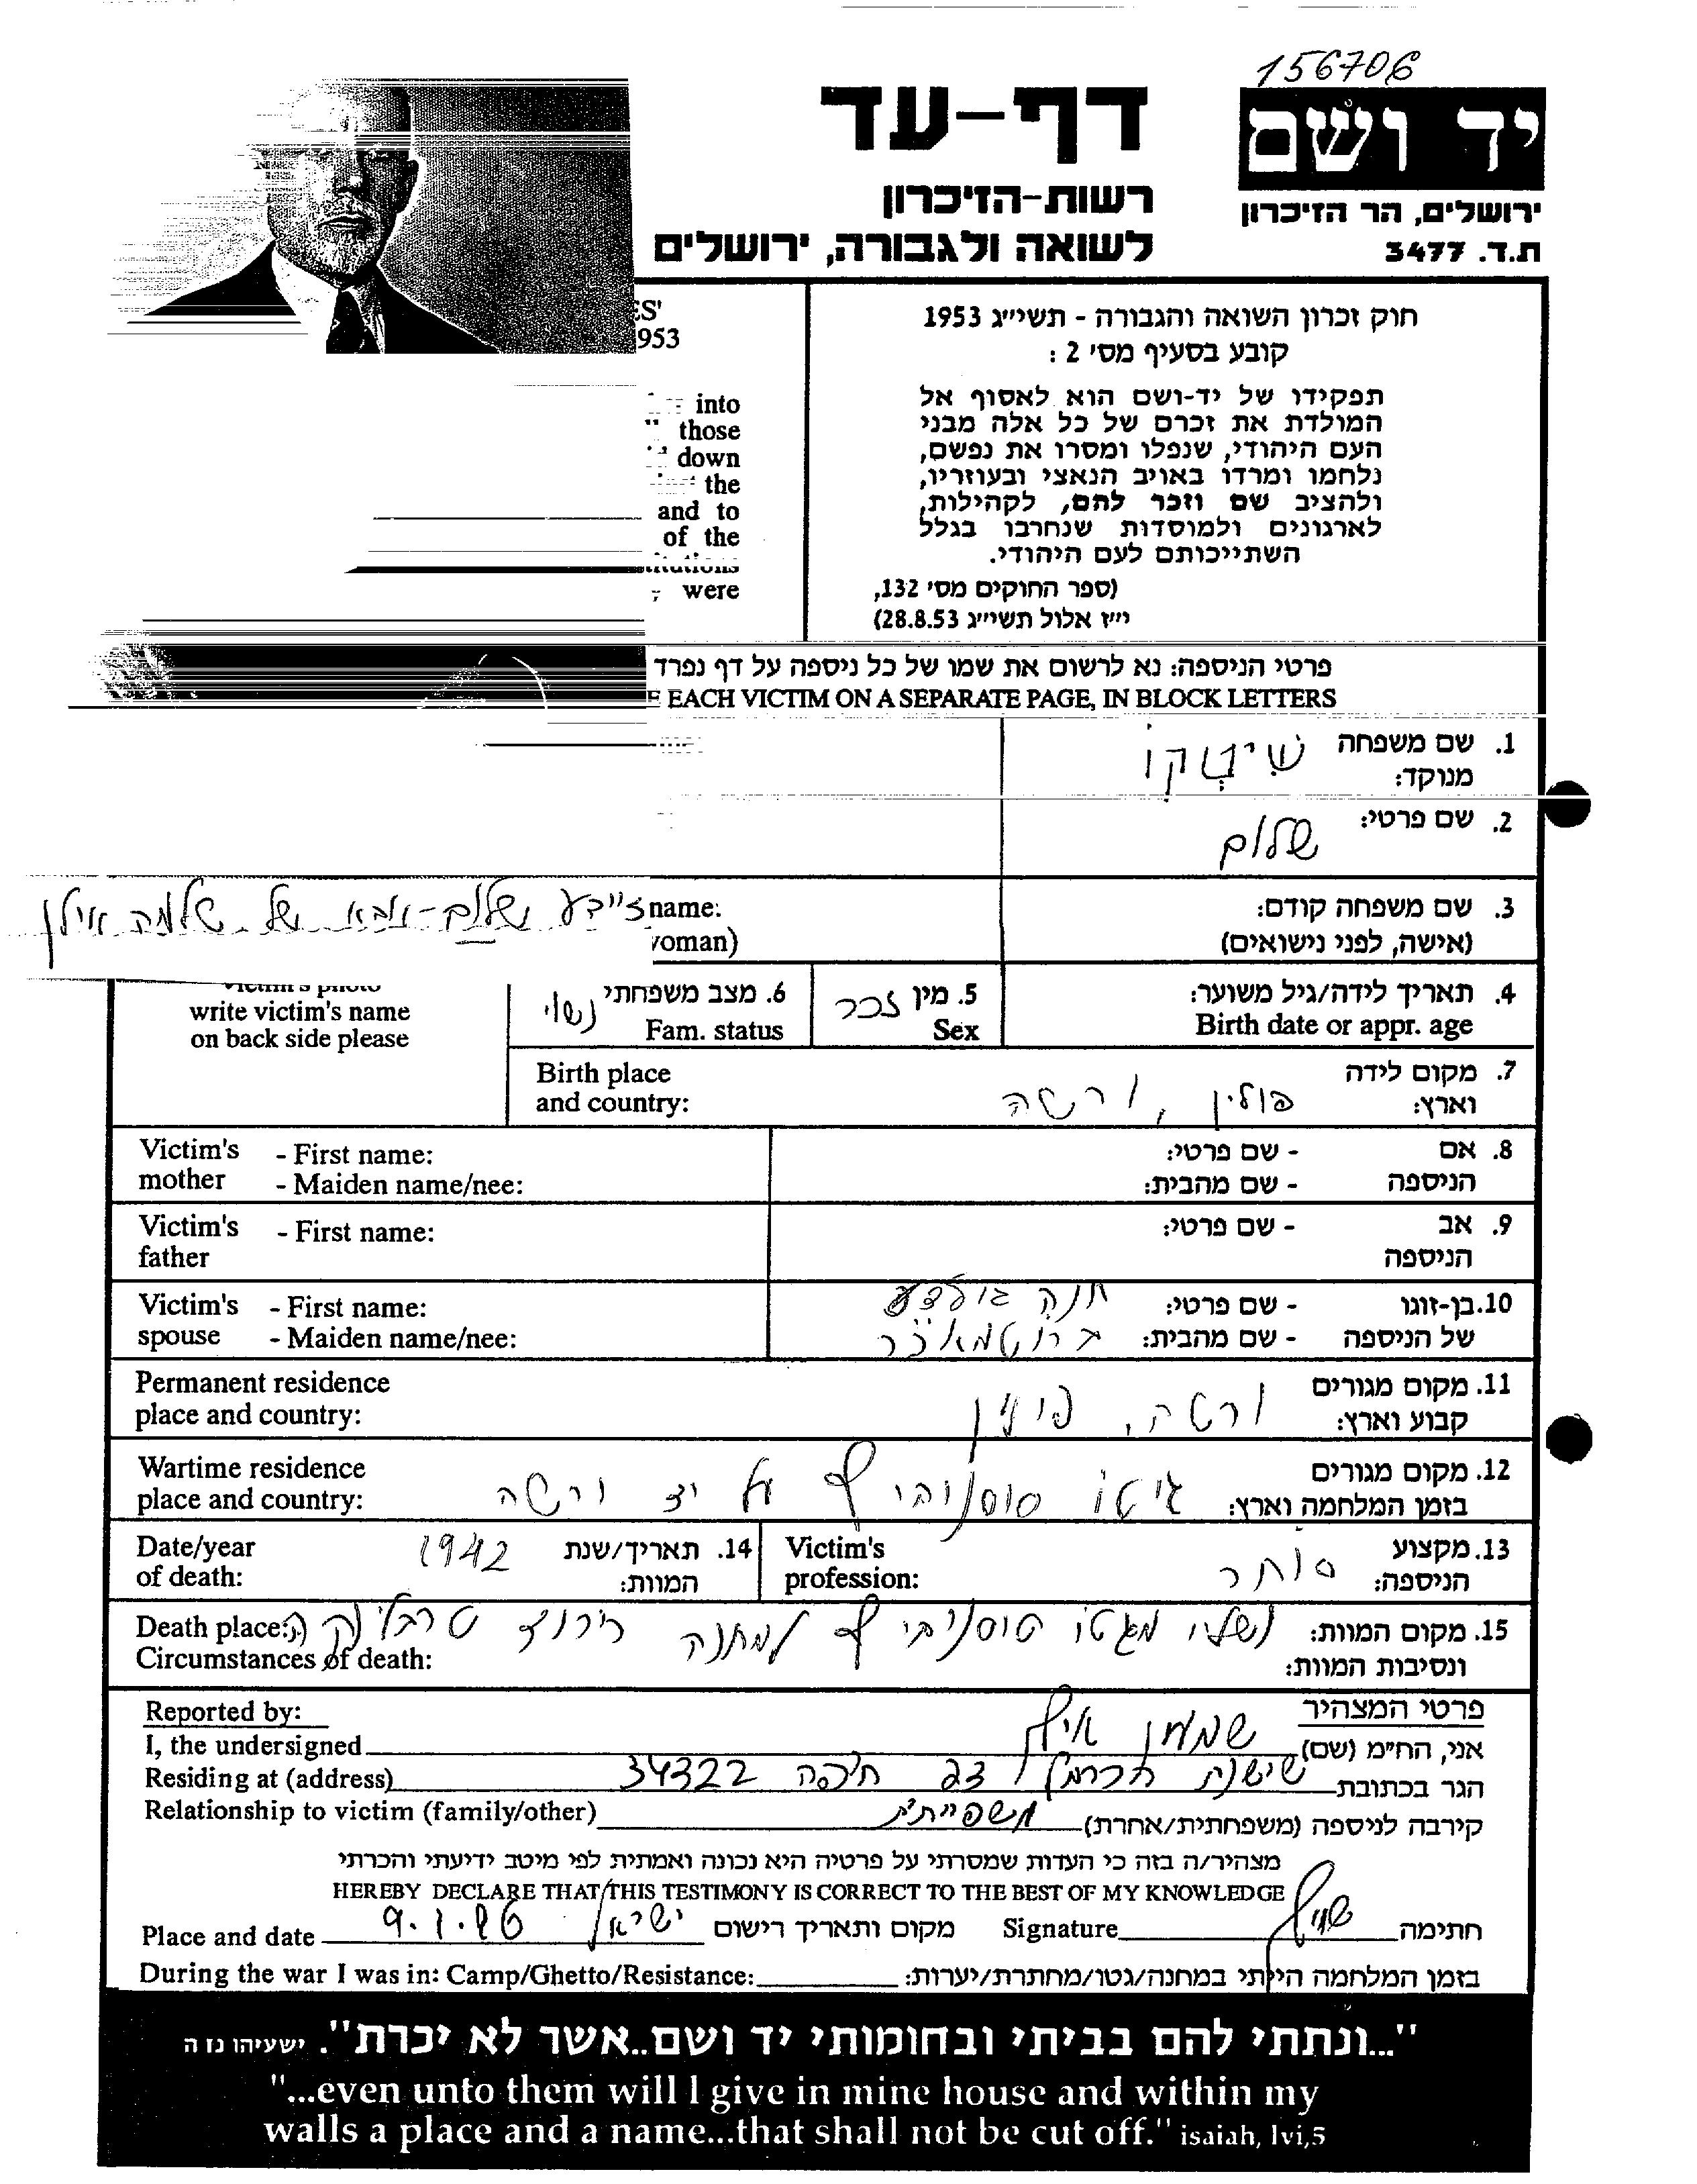 156706
דף-עד
יד ושם
רשות-הזיכרון
ירושלים, הר הזיכרון
לשואה ולגבורה, ירושלים
ת.ד. 3477
חוק זכרון השואה והגבורה - תשי״ג 1953
קובע בסעיף מס׳ 2 :
תפקידו של יד-ושם הוא לאסוף אל
המולדת את זכרם של כל אלה מבני
העם היהודי, שנפלו ומסרו את נפשם,
נלחמו ומרדו באויב הנאצי ובעוזריו,
ולהציב שם וזכר להם, לקהילות,
לארגונים ולמוסדות שנחרבו בגלל
השתייכותם לעם היהודי.
(ספר החוקים מס׳ 132,
י״ז אלול תשי״ג 28.8.53)
ES'
953
into
those
down
the
and to
of the
were
פרטי הניספה: נא לרשום את שמו של כל ניספה על דף נפרד
EACH VICTIM ON A SEPARATE PAGE, IN BLOCK LETTERS
1. שם משפחה
מנוקד:
2. שם פרטי: שלום
3. שם משפחה קודם: name:
(אישה, לפני נישואים) woman)
שלום - אבא של
victim's photo
write victim's name
on back side please
4. תאריך לידה/גיל משוער:
Birth date or appr. age
5. מין זכר
Sex
6. מצב משפחתי נשוי
Fam. status
7. מקום לידה
וארץ: פולין, ורשה
Birth place
and country:
8. אם - שם פרטי:
הניספה - שם מהבית:
Victim's - First name:
mother - Maiden name/nee:
9. אב - שם פרטי:
הניספה
Victim's - First name:
father
10. בן-זוגו - שם פרטי: חנה
של הניספה - שם מהבית:
Victim's - First name:
spouse - Maiden name/nee:
11. מקום מגורים
קבוע וארץ: ורשה, פולין
Permanent residence
place and country:
12. מקום מגורים
בזמן המלחמה וארץ: גיטו על יד ורשה
Wartime residence
place and country:
13. מקצוע
הניספה: סוחר
Victim's
profession:
14. תאריך/שנת
המוות: 1942
Date/year
of death:
15. מקום המוות:
ונסיבות המוות: מגטו למחנה טרבלינקה
Death place:
Circumstances of death:
פרטי המצהיר
Reported by:
אני, הח״מ (שם)
I, the undersigned
הגר בכתובת 23 חיפה 34322
Residing at (address)
קירבה לניספה (משפחתית/אחרת) משפחתית
Relationship to victim (family/other)
מצהיר/ה בזה כי העדות שמסרתי על פרטיה היא נכונה ואמתית לפי מיטב ידיעתי והכרתי
HEREBY DECLARE THAT THIS TESTIMONY IS CORRECT TO THE BEST OF MY KNOWLEDGE
חתימה Signature
מקום ותאריך רישום ישראל
Place and date
בזמן המלחמה הייתי במחנה/גטו/מחתרת/יערות:
During the war I was in: Camp/Ghetto/Resistance:
"...ונתתי להם בביתי ובחומותי יד ושם..אשר לא יכרת". ישעיהו נו ה
"...even unto them will I give in mine house and within my
walls a place and a name...that shall not be cut off." isaiah, lvi,5